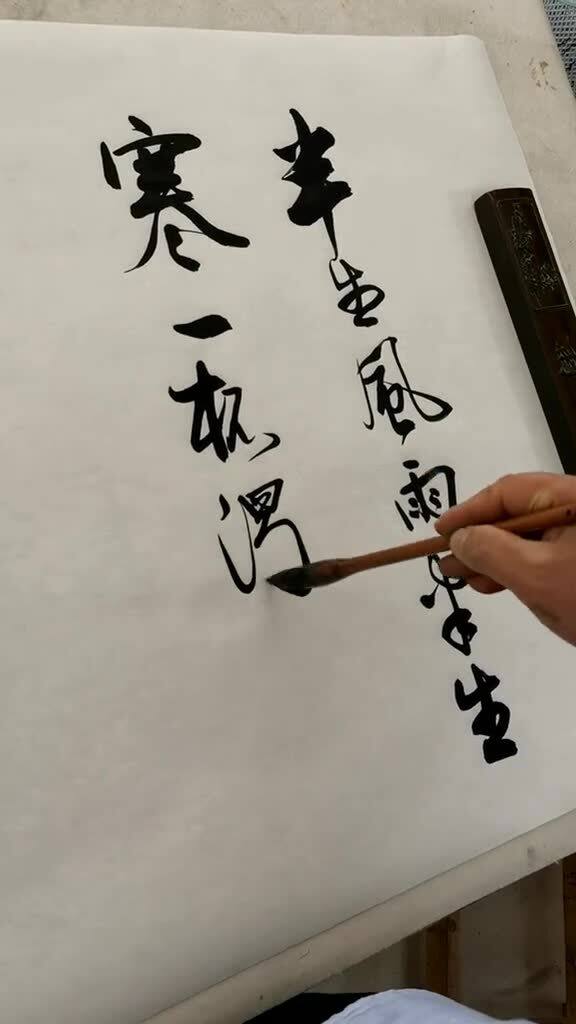 半生風雨半生
寒一杯濁